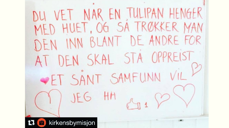 DU VET NÅR EN TULIPAN HENGER
MED HUET, OG SÅ TRØKKER MAN
DEN INN BLANT DE ANDRE FOR
AT DEN SKAL STÅ OPPREIST.
ET SÅNT SAMFUNN VIL
JEG HA
kirkensbymisjon